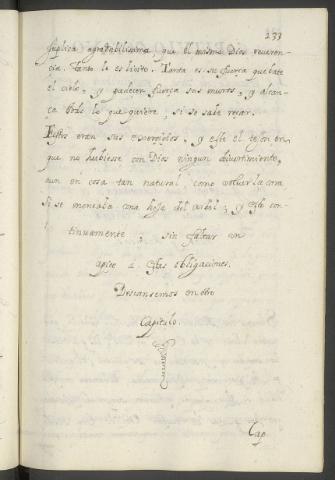 233
suplica agradabilissima que el mismo Dios reveren-
cia. Tanto le es licito. Tanta es su fuerça que bate
el cielo, y padecen fuerça sus muros, y alcan-
ça todo lo que quiere, si se sabe rezar.
Estos eran sus exercicios, y este el teson en
que no hubiesse con Dios ningun divertimiento,
aun en cosa tan natural como volver la cara
si se moneaba una hoja del arbol; y esto con-
tinuamente, sin faltar un
apice a estas obligaciones.
Descansemos en otro
Capitulo.
Cap